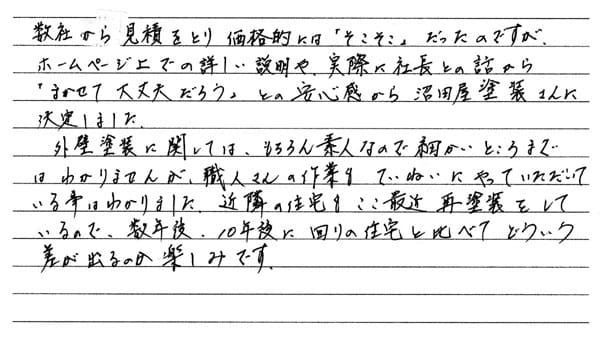 数社から見積をとり価格的には「そこそこ」だったのですが、
ホームページ上での詳しい説明や、実際に社長との話から
「まかせて大丈夫だろう」との安心感から沼田屋塗装さんに
決定しました。
外壁塗装に関しては、もちろん素人なので細かいところまで
はわかりませんが、職人さんの作業もていねいにやっていただいて
いる事はわかりました。近隣の住宅もここ最近再塗装をして
いるので、数年後、10年後に回りの住宅と比べてどういう
差が出るのか楽しみです。